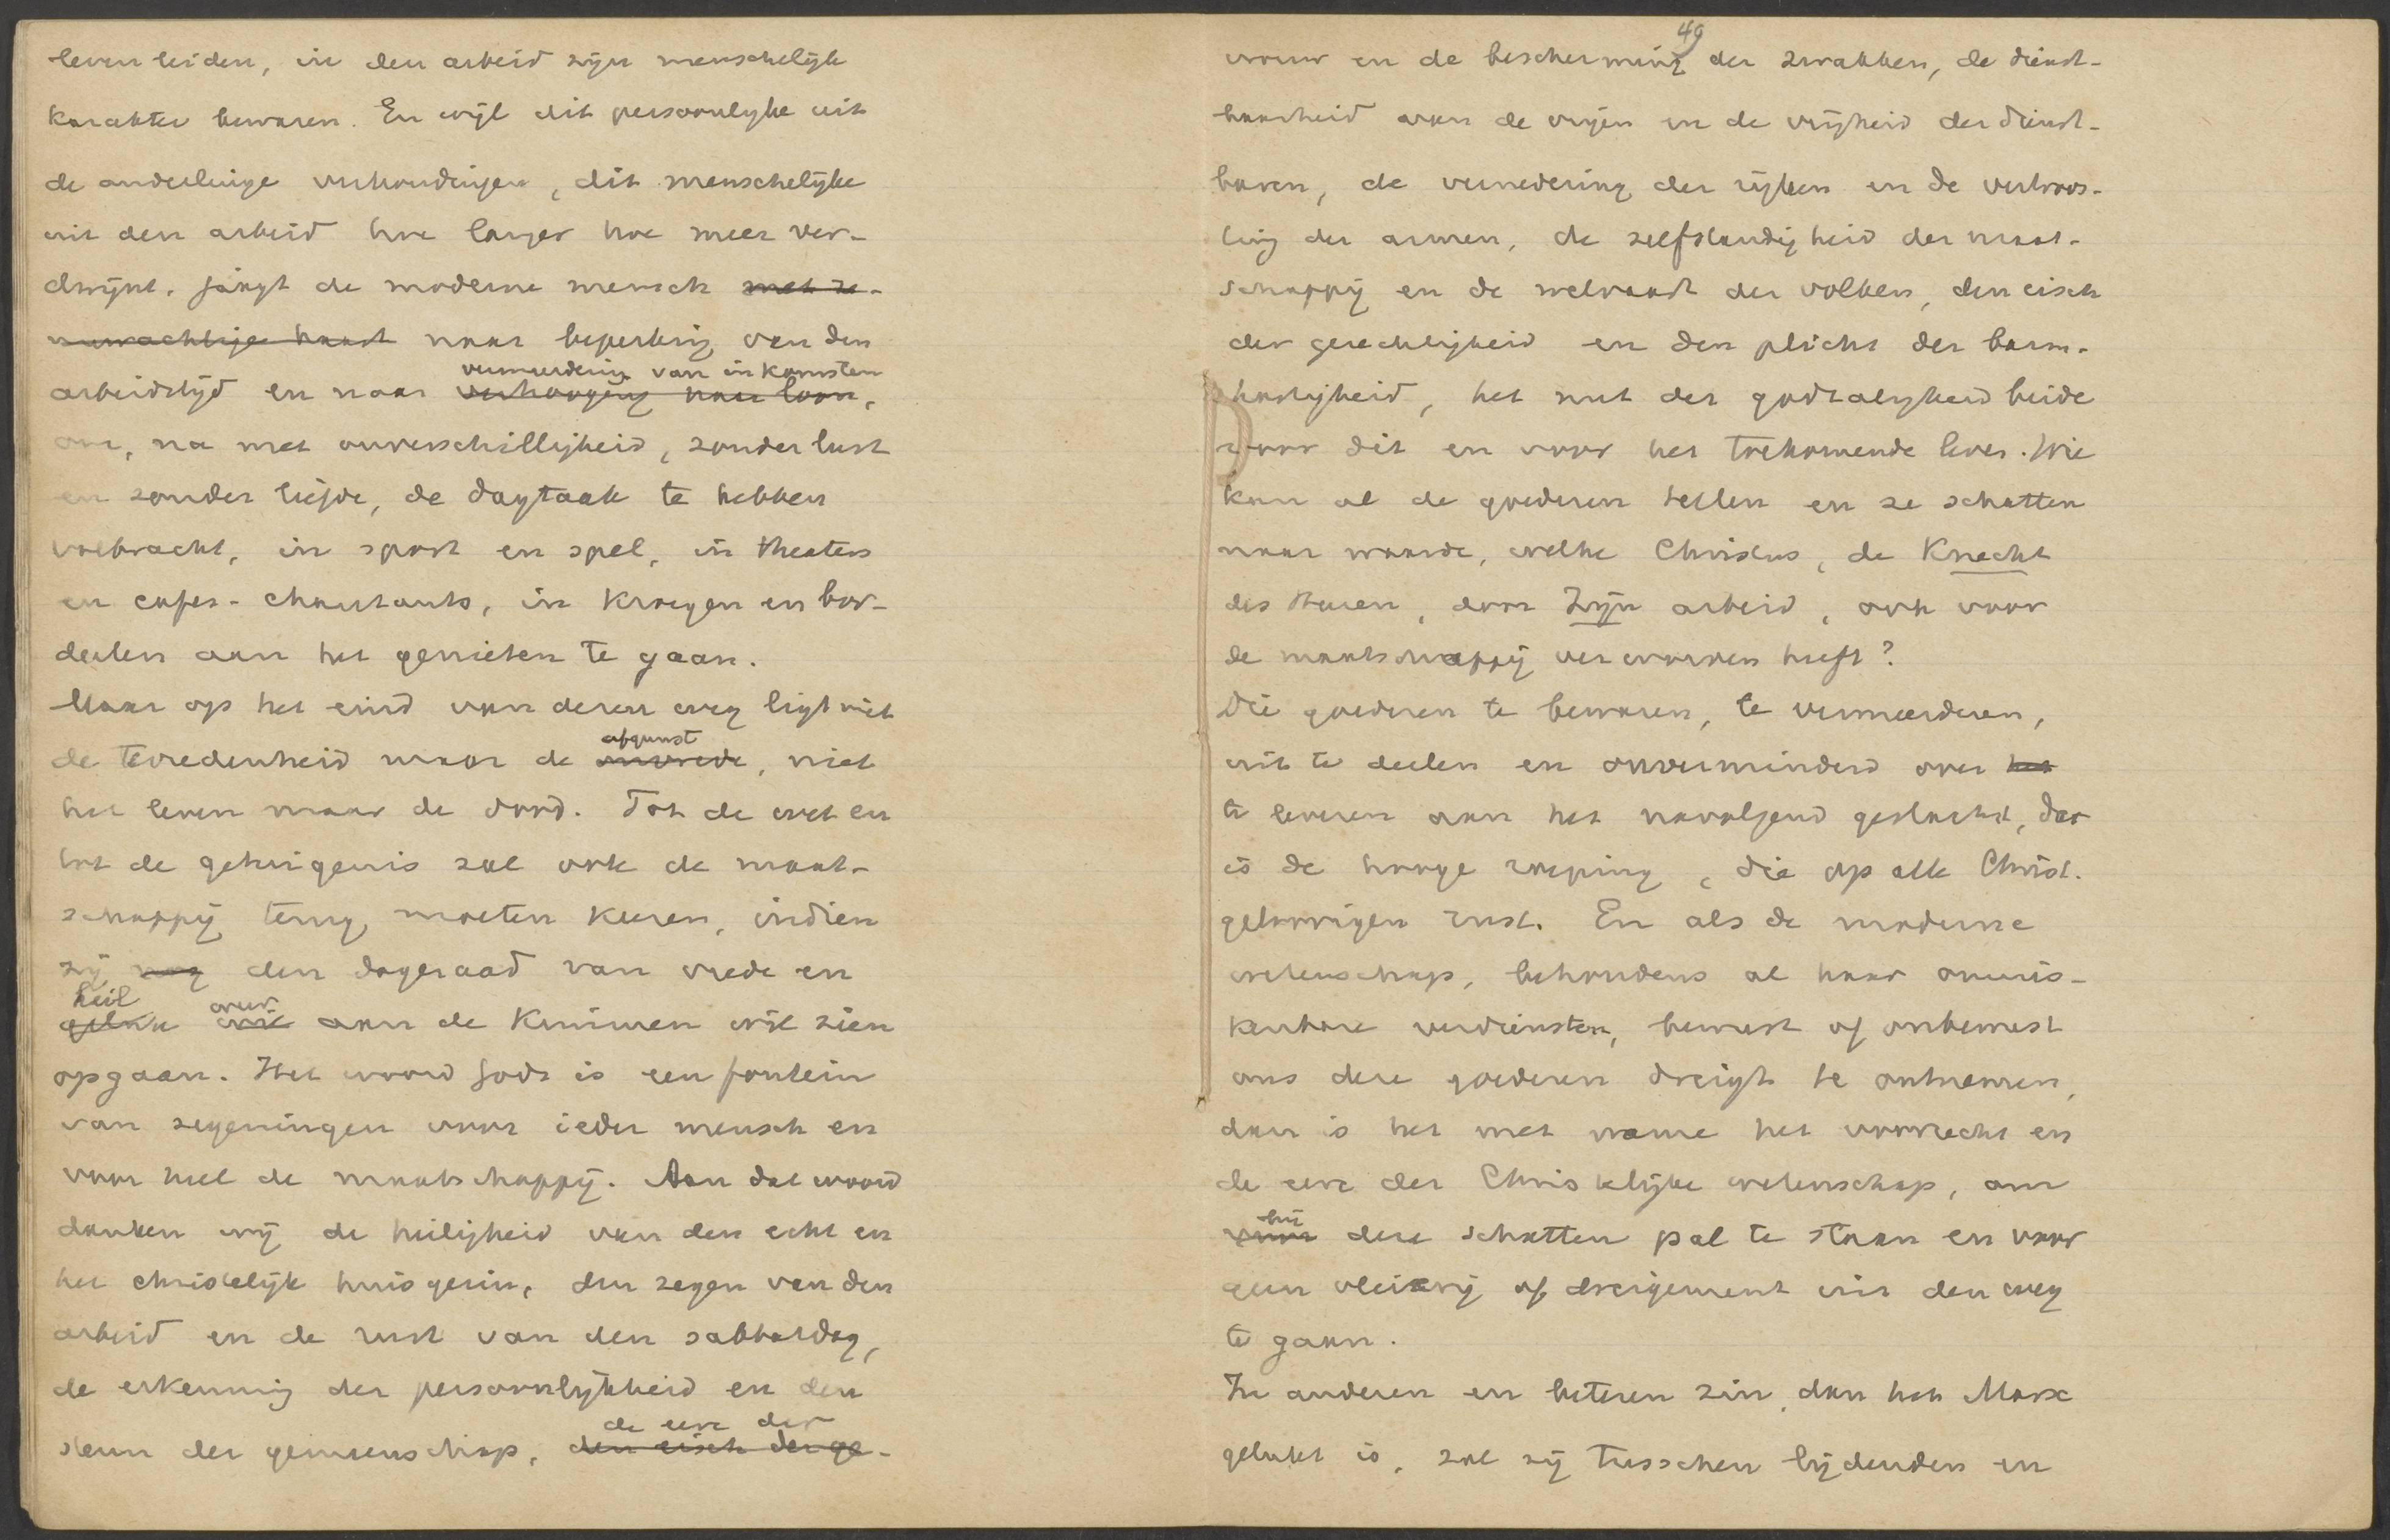 leven leiden, in den arbeid zijn menschelijk
karakter bewaren. En wijl dit persoonlijke uit
de onderlinge verhoudingen, dit menschelijke
uit den arbeid hoe langer hoe meer ver-
dwijnt, jaagt de moderne mensch met ze-
nuwachtige haast naar beperking van den
vermeerdering van inkomsten
arbeidstijd en naar verhooging van loon,
om, na met onverschilligheid, zonder lust
en zonder liefde, de dagtaak te hebben
volbracht, in sport en spel, in theaters
en cafés-chantants, in kroegen en bor-
deelen aan het genieten te gaan.
Maar op het eind van dezen weg ligt niet
afgunst
de tevredenheid maar de onvrede, niet
het leven maar de dood. Tot de wet en
tot de getuigenis zal ook de maat-
schappij terug moeten keeren, indien
zij nog den dageraad van vrede en
heil over
geluk wil aan de kimmen wil zien
opgaan. Het woord Gods is een fontein
van zegeningen voor ieder mensch en
voor heel de maatschappij. Aan dat woord
danken wij de heiligheid van den echt en
het christelijk huisgezin, den zegen van den
arbeid en de rust van den sabbatdag,
de erkenning der persoonlijkheid en den
de eere der
steun der gemeenschap, den eisch der ge-
49
vrouw en de bescherming der zwakken, de dienst-
baarheid van de vrijen en de vrijheid der dienst-
baren, de vernedering der rijken en de vertroos-
ting der armen, de zelfstandigheid der maat-
schappij en de welvaart der volken, den eisch
der gerechtigheid en den plicht der barm-
hartigheid, het nut der godzaligheid beide
voor dit en voor het toekomende leven. Wie
kan al de goederen tellen en ze schatten
naar waarde, welke Christus, de Knecht
des Heeren, door Zijn arbeid, ook voor
de maatschappij verworven heeft?
Die goederen te bewaren, te vermeerderen,
uit te deelen en onverminderd over het
te leveren aan het navolgend geslacht, dat
is de hooge roeping, die op alle Christ.
geloovigen rust. En als de moderne
wetenschap, behoudens al haar onmis-
kenbare verdiensten, bewust of onbewust
ons deze goederen dreigt te ontnemen,
dan is het met name het voorrecht en
de eere der Christelijke wetenschap, om
bij
voor deze schatten pal te staan en voor
geen vleierij of dreigement uit den weg
te gaan.
In anderen en beteren zin, dan het Marx
gelukt is, zal zij tusschen lijdenden en